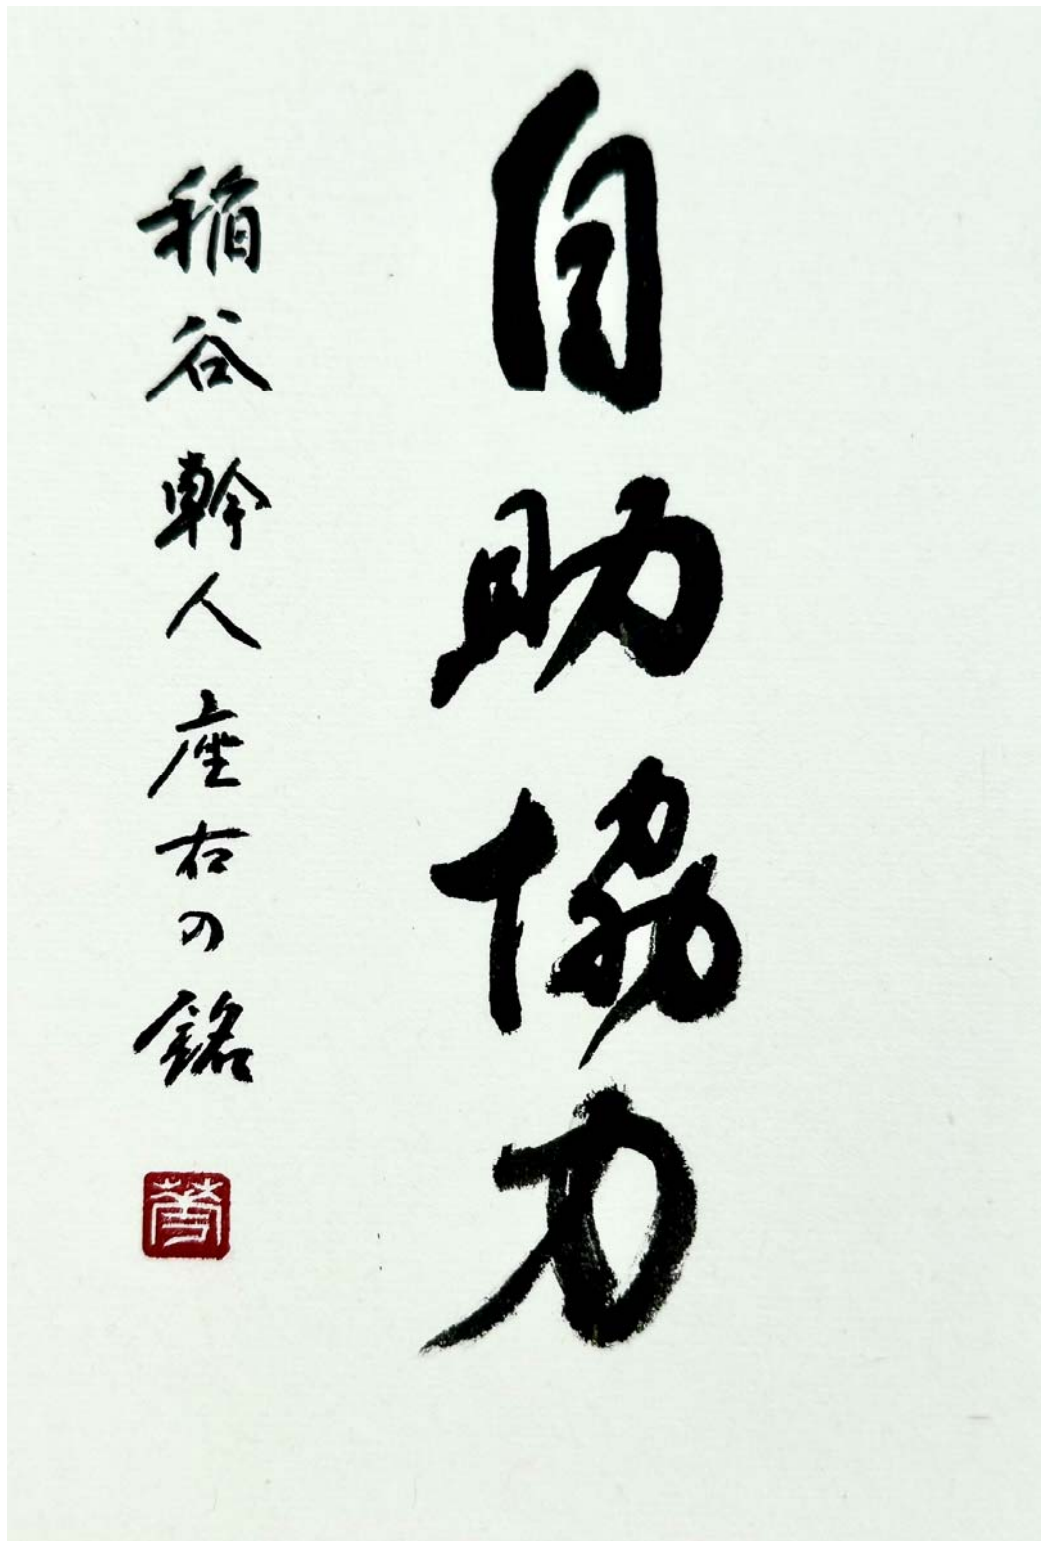 自助協力
稲谷幹人座右の銘